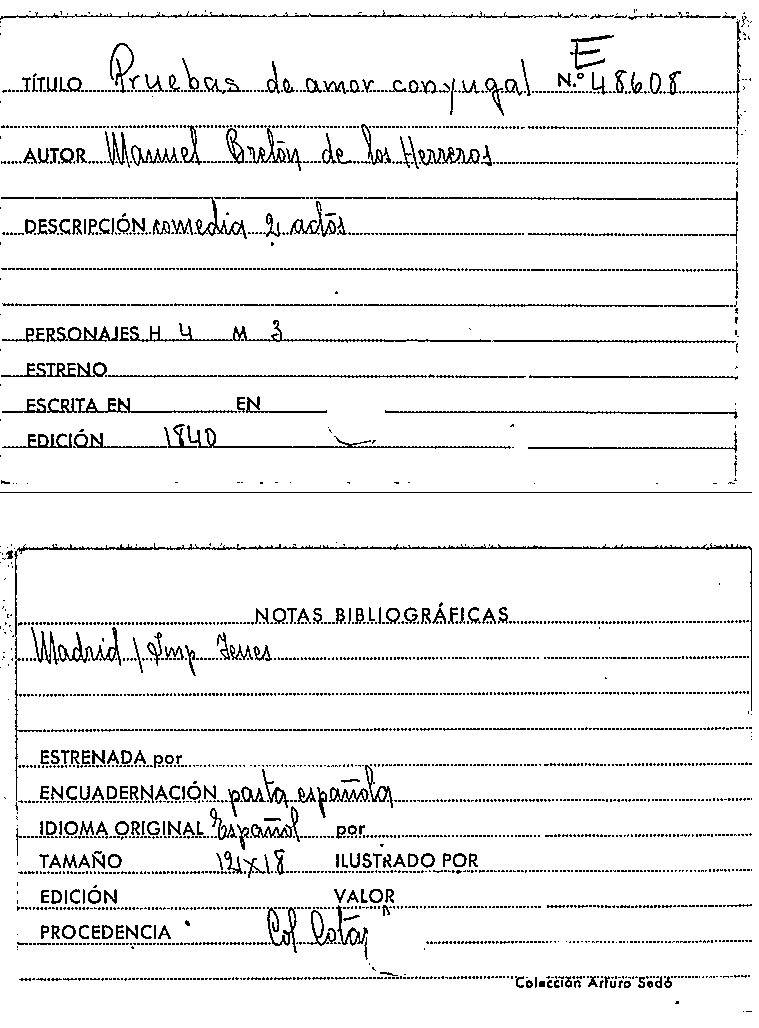 E
TÍTULO Pruebas de amor conyugal N.º 48608
AUTOR Manuel Bretón de los Herreros
DESCRIPCIÓN comedia 2 actos
PERSONAJES H 4 M 3
ESTRENO
ESCRITA EN EN
EDICIÓN 1840
NOTAS BIBLIOGRÁFICAS
Madrid / Imp
ESTRENADA por
ENCUADERNACIÓN pasta española
IDIOMA ORIGINAL Español por
TAMAÑO 12x18 ILUSTRADO POR
EDICIÓN VALOR
PROCEDENCIA Col
Colección Arturo Sedó